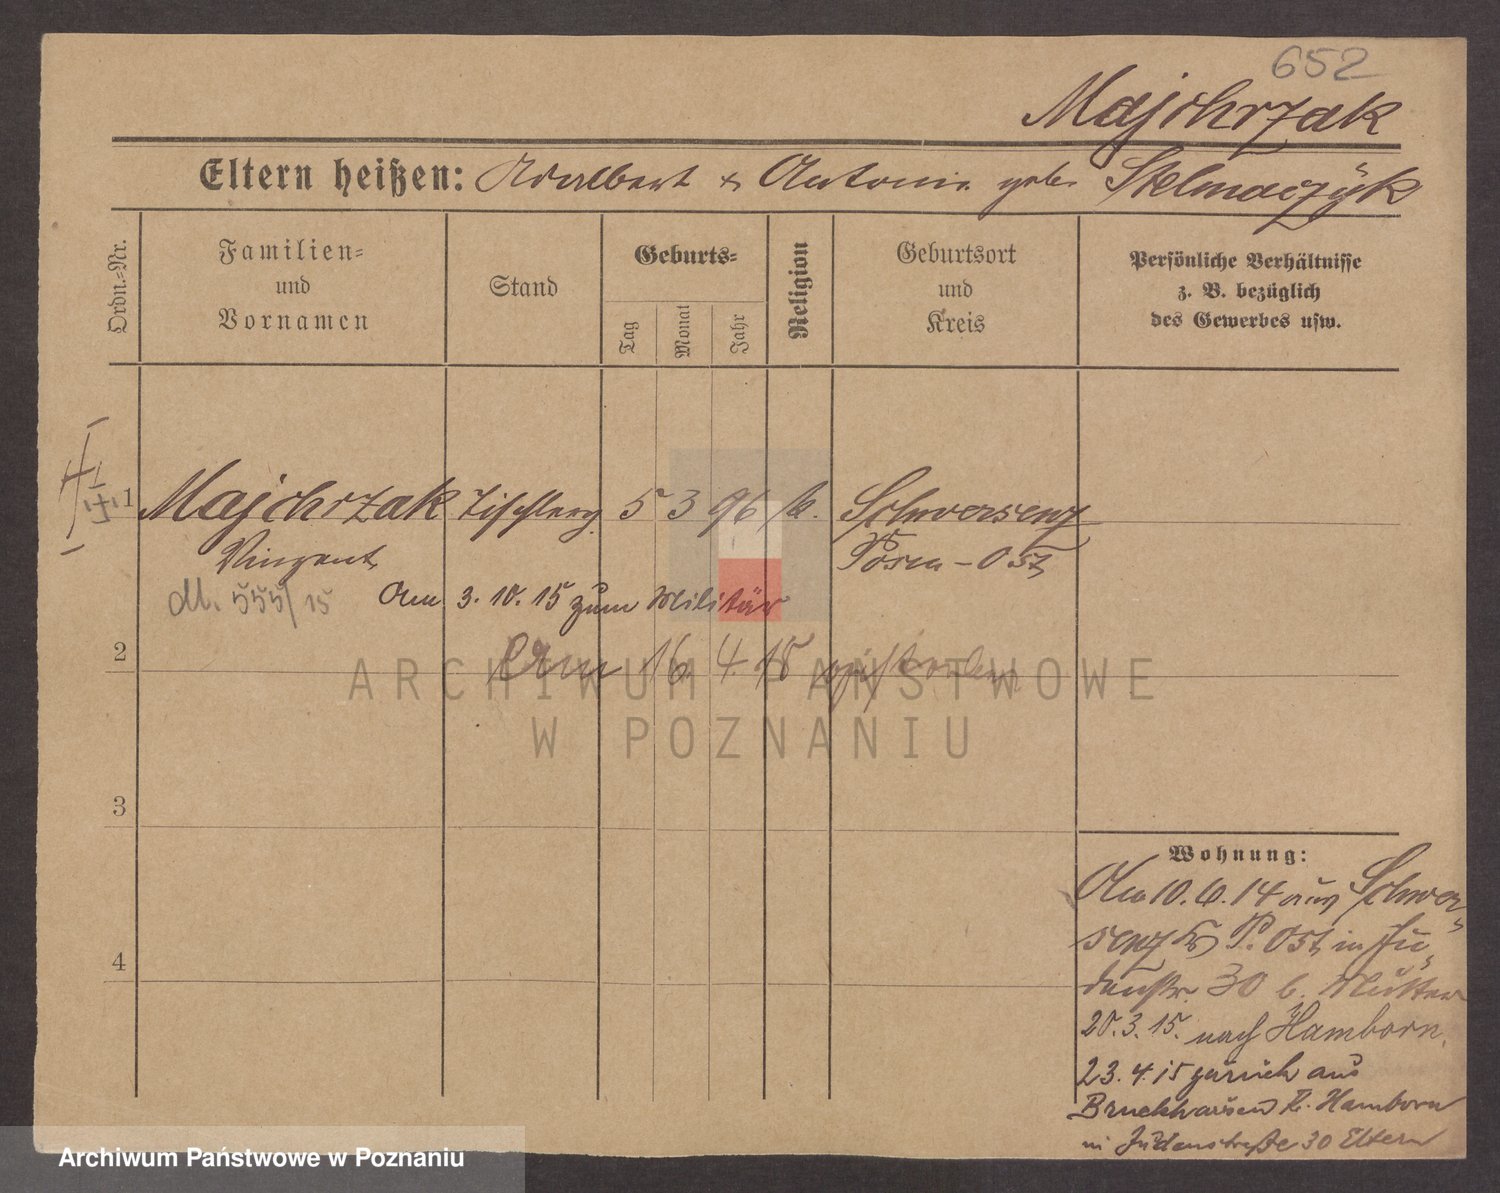 652
Majchrzak
Eltern heißen: Adalbert & Antonie geb. Stelmaczyk
Ordn.=Nr.
Familien=
und
Vornamen
Stand
Geburts=
Tag
Monat
Jahr
Religion
Geburtsort
und
Kreis
Persönliche Verhältnisse
z. B. bezüglich
des Gewerbes usw.
1 Majchrzak Tischlerg. 5 3 96 k. Schwersenz
Vinzent Posen-Ost
M. 555/15 Am 3.10.15 zum Militär
2 Am 16. 4. 18 gestorben
ARCHIWUM PAŃSTWOWE
W POZNANIU
3
4
Wohnung:
Am 10.6.14 aus Schwer-
senz Kr P. Ost, in Ju-
denstr. 30 b. Mutter
20.3.15. nach Hamborn.
23.4.15 zurück aus
Bruckhausen K. Hamborn
in Judenstraße 30 Eltern
Archiwum Państwowe w Poznaniu